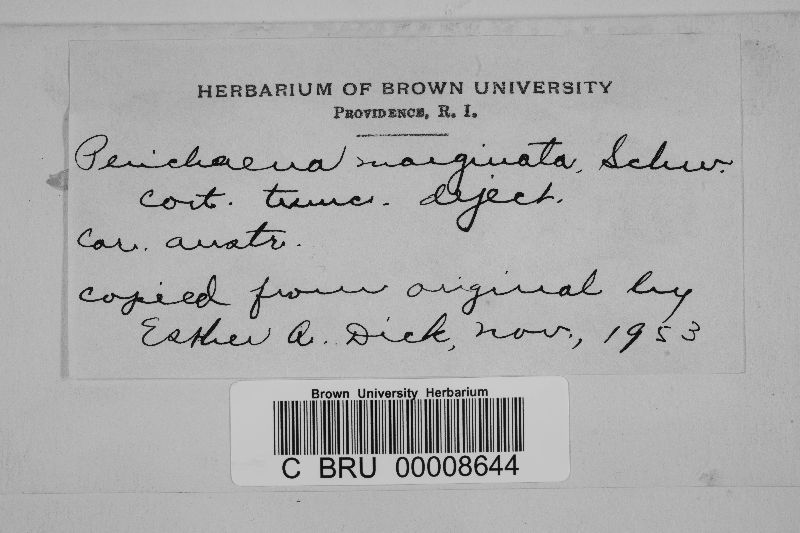 HERBARIUM OF BROWN UNIVERSITY
PROVIDENCE, R. I.
Perichaena marginata, Schw.
cort. trunc. deject.
Car. austr.
copied from original by
Esther A. Dick, Nov., 1953
Brown University Herbarium
C BRU 00008644